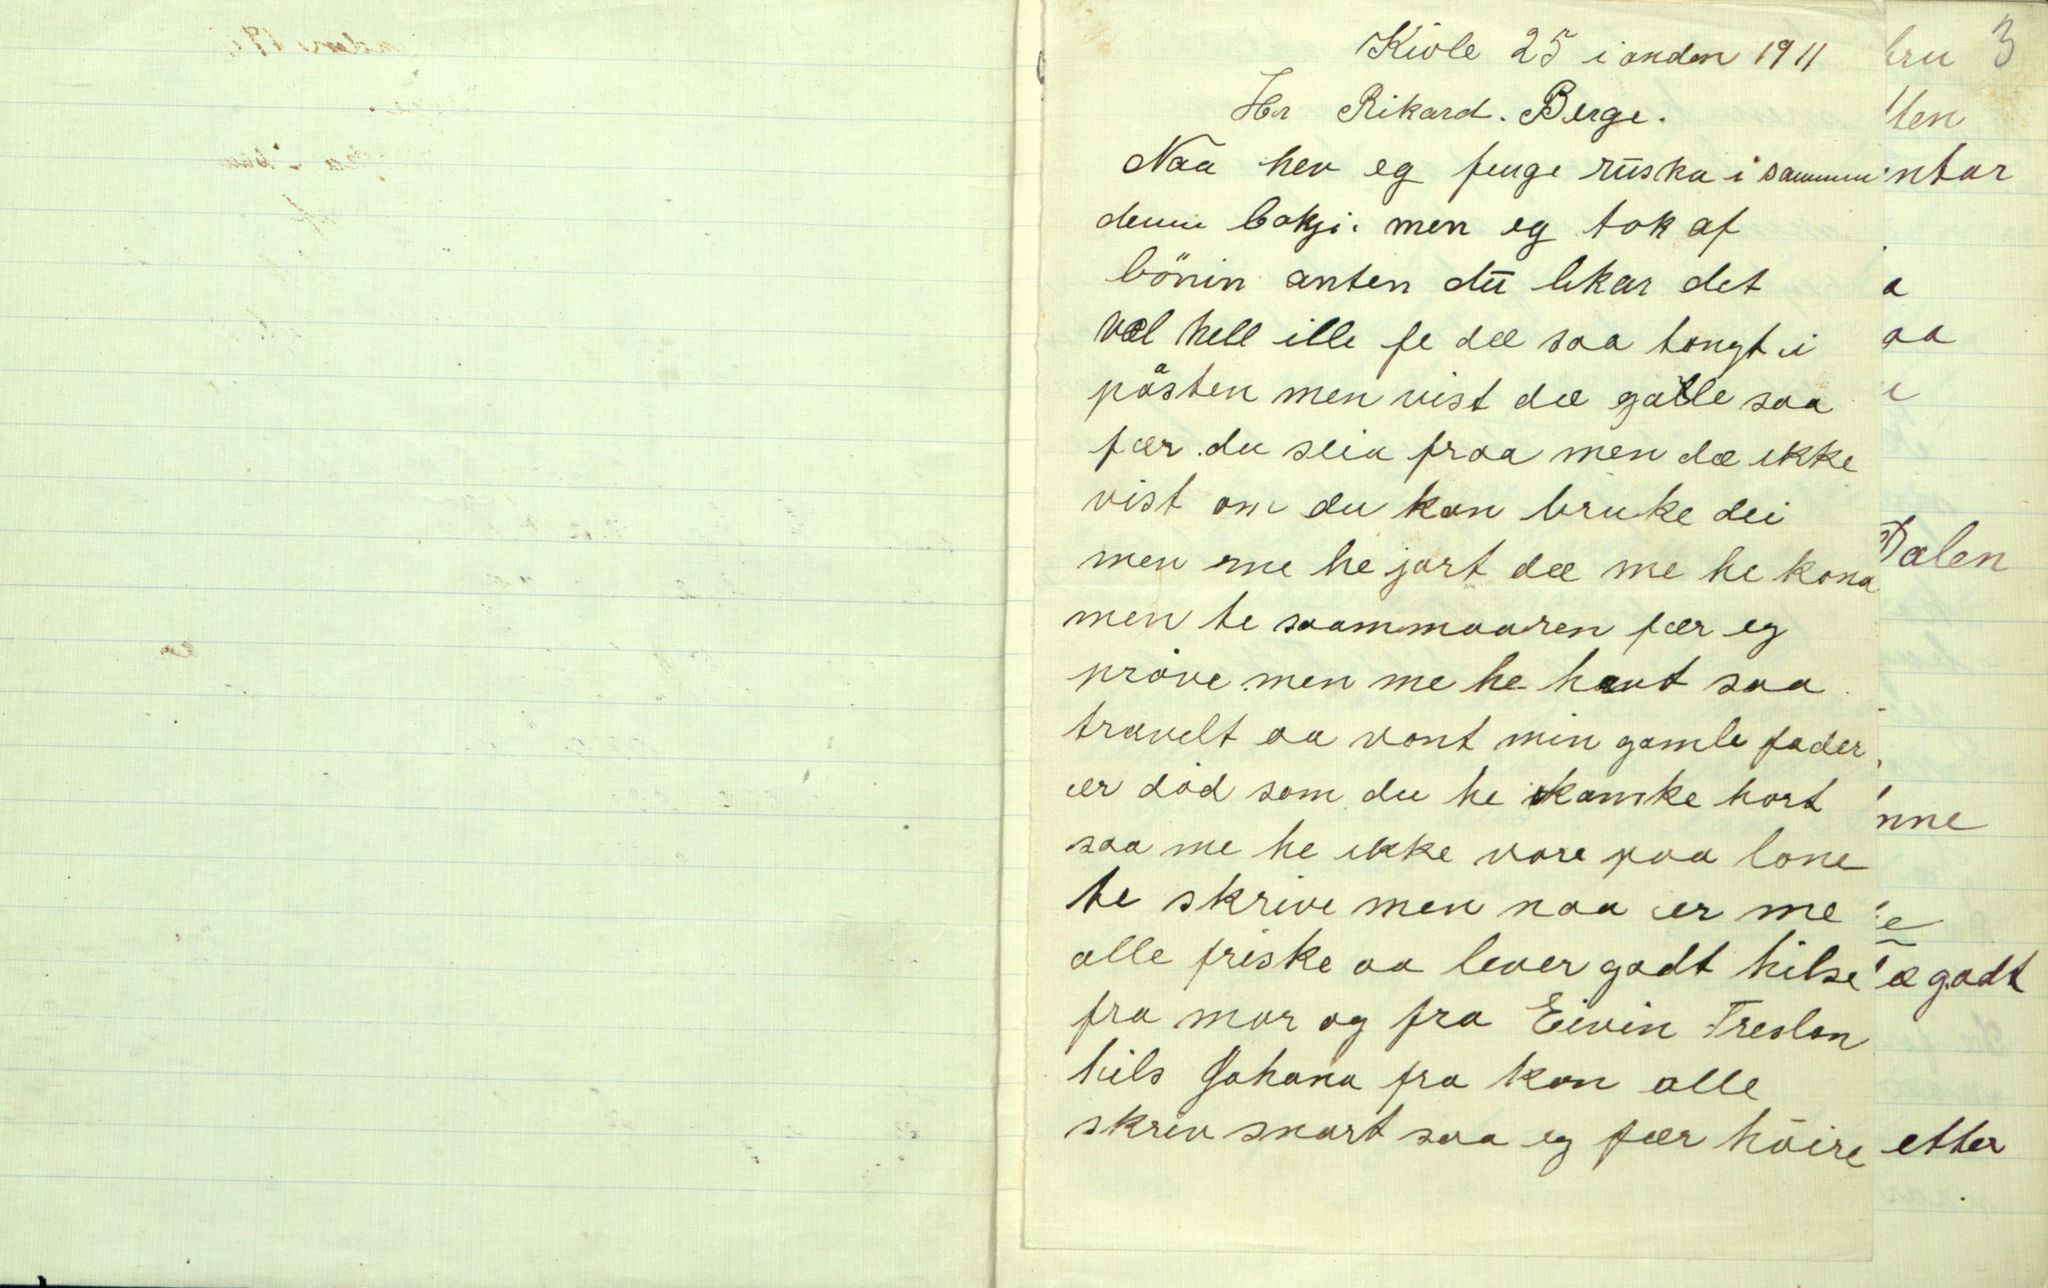 Kivle 25 i anden 1911
Hr Rikard. Berge.
Naa hev eg fenge rūska i sammen
denne bokji. men eg tok af
bönin anten dū likar det
vel hell ille fe dæ saa tongt i
påsten men vist dæ galle saa
fær du seia fraa men dæ ikke
vist om du kan bruke dei
men me he jort dæ me he kona
men te saammaaren fær eg
pröve men me he havt saa
travelt aa vont min gamle fader
ær död som du he kanske hort
saa me he ikke vore paa lone
te skrive men naa ær me
alle friske aa lever godt hilse
fra mor og fra Eivin Treslon
hils Johana fra kon alle
skriv snart saa eg fær höire
bru 3
tten
ntar
a
aa
Dalen
nne
e
æ godt
etter